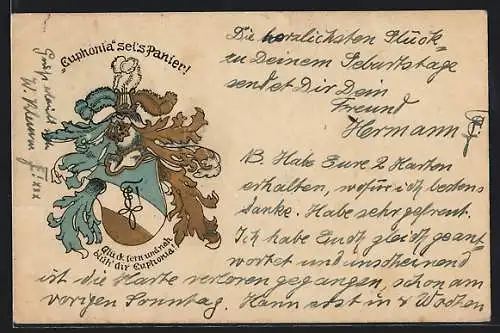 "Euphonia" sei's Panier!
Glück fern und nah
blüh' dir Euphonia!
Die herzlichsten Glück-
zu Deinem Geburtstage
sendet Dir Dein
Freund
Hermann
NB. Habe Eure 2 Karten
erhalten, wofür ich bestens
danke. Habe sehr gefreut.
Ich habe Euch gleich geant-
wortet und anscheinend
ist die Karte verloren gegangen, schon am
vorigen Sonntag. Kann erst in 8 Wochen
W.